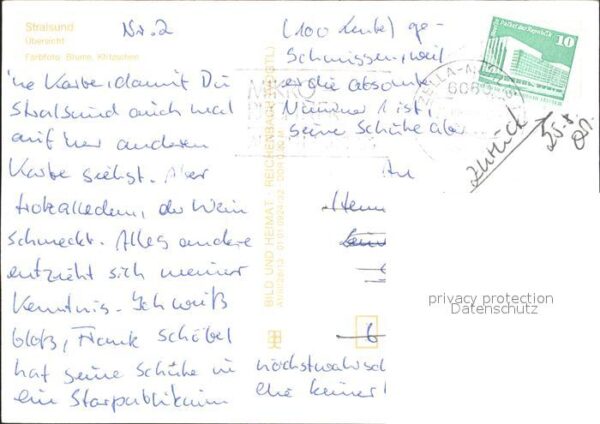 Stralsund
Übersicht
Farbfoto: Blume, Klitschen
Nr. 2
'ne Karte, damit Du
Stralsund auch mal
auf 'ner anderen
Karte siehst. Aber
trotzalledem, der Wein
schmeckt. Alles andere
entzieht sich meiner
Kenntnis. Ich weiß
bloß, Frank Schöbel
hat seine Schuhe in
ein Starpublikum
(100 Leute) ge-
schmissen, weil
er die absolute
Nummer 1 ist,
seine Schuhe aber
höchstwahrsch
eh keiner
BILD UND HEIMAT REICHENBACH (VOGTL)
10
ZELLA-M
6060
zurück
25.8.
privacy protection
Datenschutz
6